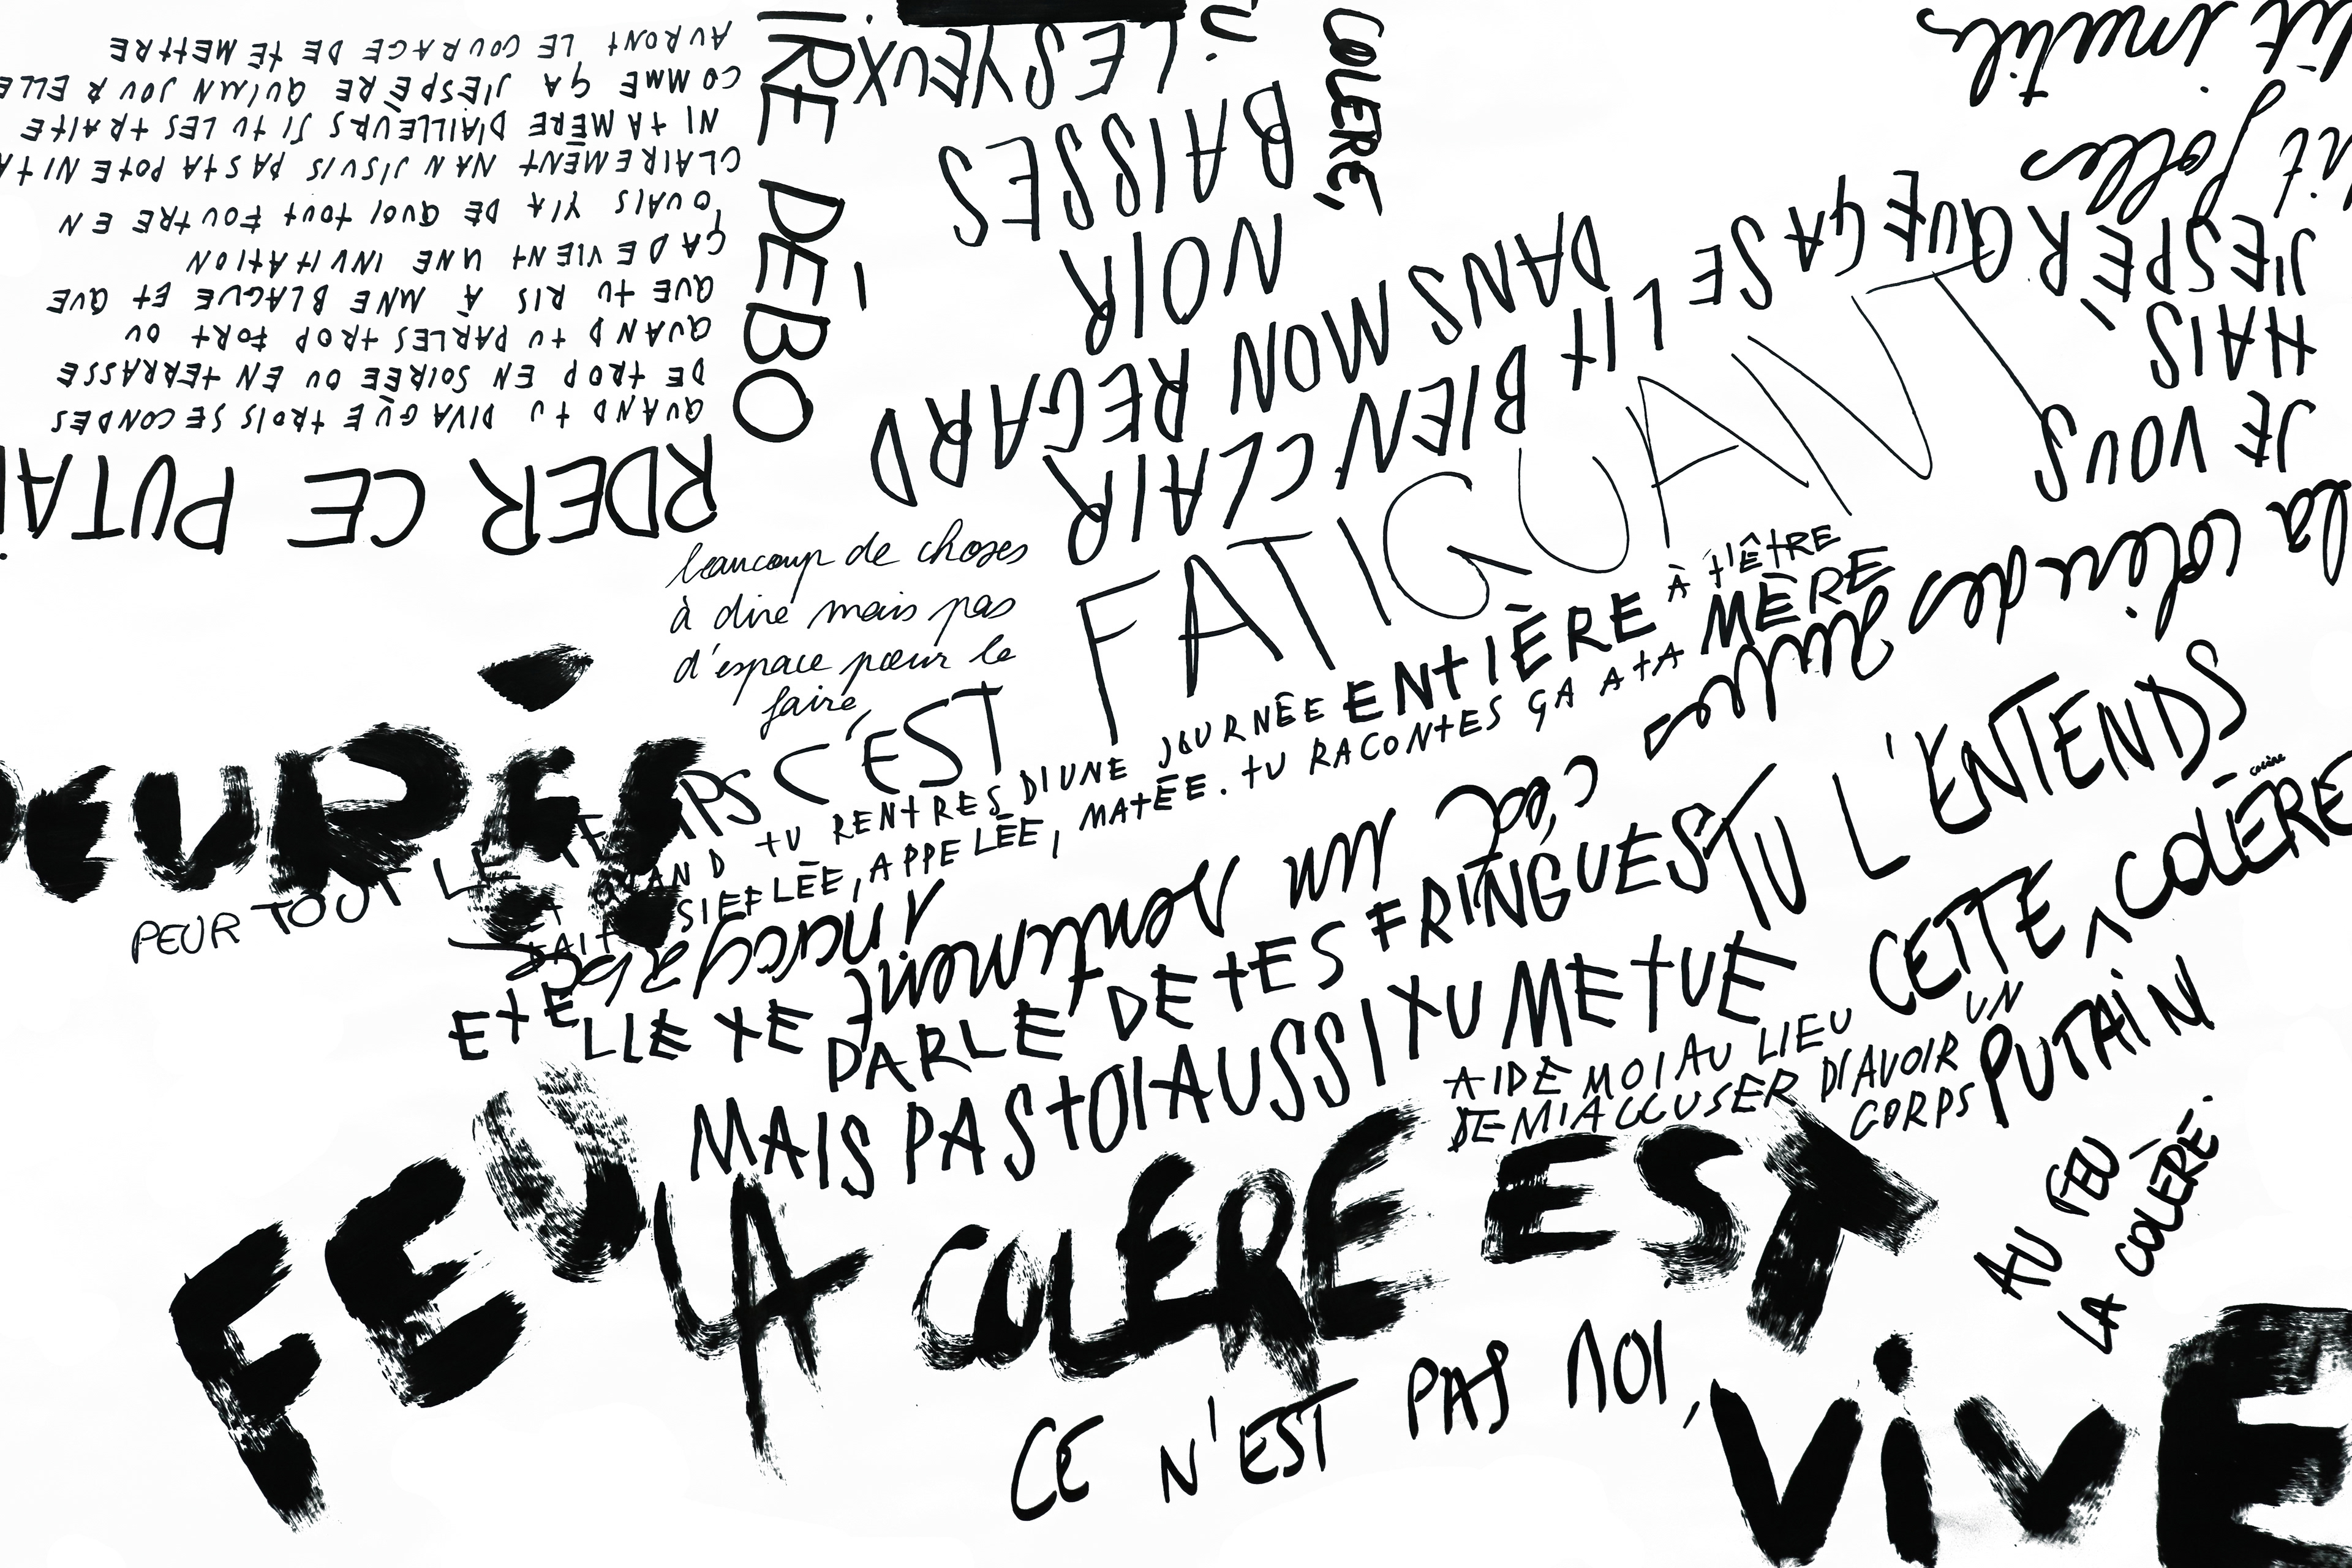 QUAND TU DIVAGUE TROIS SECONDES
DE TROP EN SOIRÉE OU EN TERRASSE
QUAND TU PARLES TROP FORT OU
QUE TU RIS À MNE BLAGUE ET QUE
ÇA DEVIENT UNE INVITATION
OUAIS Y'A DE QUOI TOUT FOUTRE EN
CLAIREMENT NAN J'SUIS PAS TA POTE NI TA
NI TA MÈRE D'AILLEURS SI TU LES TRAITE
COMME ÇA J'ESPÈRE QU'UN JOUR ELLE
AURONT LE COURAGE DE TE METTRE
IRE DÉBO
RDER CE PUTAI
COLÈRE,
JE VOUS
HAIS
J'ESPÈR QUE ÇA SE LIT BIEN CLAIR
DANS MON REGARD
NOIR
BAISSES
LES YEUX
la colère des
folles
inutiles
c'est un sentiment
beaucoup de choses
à dire mais pas
d'espace pour le
faire,
PEUR TOUT LE TEMPS C'EST FATIGUANT
QUAND TU RENTRES D'UNE JOURNÉE ENTIÈRE À T'ÊTRE
FAIT SIFFLÉE, APPELÉE, MATÉE. TU RACONTES ÇA A TA MÈRE
ET ELLE TE PARLE DE TES FRINGUES
MAIS PAS TOI AUSSI TU ME TUE
AIDE MOI AU LIEU
DE M'ACCUSER D'AVOIR UN
CORPS
TU L'ENTENDS
CETTE COLÈRE
colère
PUTAIN
FEU
LA COLERE EST
VIVE
CE N'EST PAS MOI,
AU FEU
LA COLÈRE.